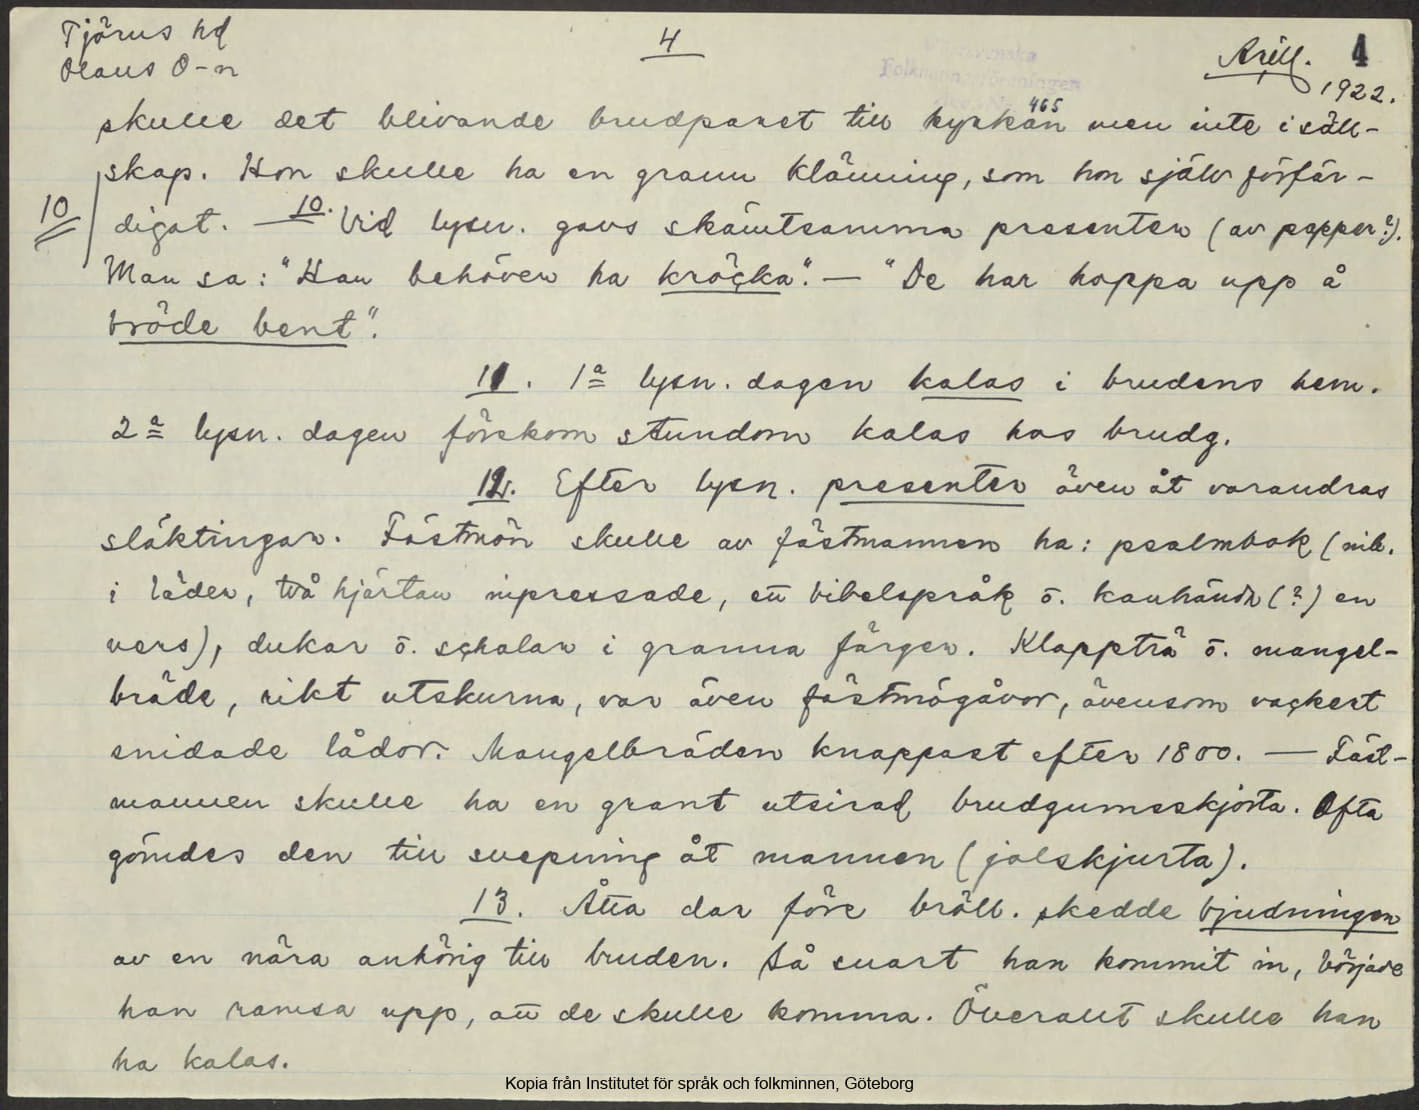 Tjörns hd
Olaus O-n
4
Arill. 4
1922.
Västsvenska
Folkminnesföreningen
465
skulle det blivande brudparet till kyrkan men inte i säll-
skap. Hon skulle ha en grann klänning, som hon själv förfär-
10
digat. — 10. Vid lysn. gavs skämtsamma presenter (av papper?).
Man sa: "Han behöver ha kröcka". — "De har hoppa upp å
bröde bent".
11. 1a lysn. dagen kalas i brudens hem.
2a lysn. dagen förekom stundom kalas hos brudg.
12. Efter lysn. presenter även åt varandras
släktingar. Fästmön skulle av fästmannen ha: psalmbok (inb.
i läder, två hjärtan inpressade, ett bibelspråk o. kanhända (?) en
vers), dukar o. schalar i granna färger. Klappträ o. mangel-
bräde, rikt utskurna, var även fästmögåvor, ävensom vackert
snidade lådor. Mangelbräden knappast efter 1800. — Fäst-
mannen skulle ha en grant utsirad brudgumsskjorta. Ofta
gömdes den till svepning åt mannen (jolskjurta).
13. Åtta dar före bröll. skedde bjudningen
av en nära anhörig till bruden. Så snart han kommit in, började
han ramsa upp, att de skulle komma. Överallt skulle han
ha kalas.
Kopia från Institutet för språk och folkminnen, Göteborg